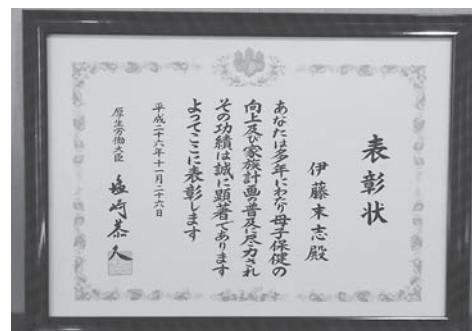 表彰状
伊藤末志殿
あなたは多年にわたり母子保健の
向上及び家族計画の普及に尽力され
その功績は誠に顕著であります
よってここに表彰します
平成二十六年十一月二十六日
厚生労働大臣 塩崎恭久